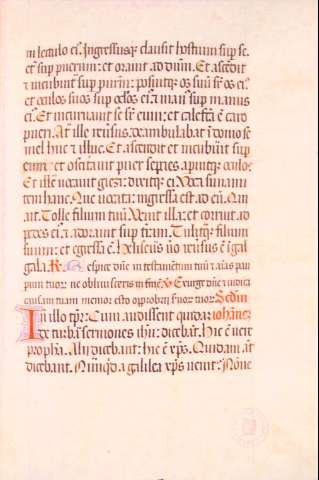 in lectulo ei. Ingressusq; clausit hostium sup se.
et sup puerum: et orauit ad dnm. Et ascedit
et incubuit sup puerum: posuitq; os suu sr os ei.
et oclos suos sup oclos ei: et man sup manus
ei. Et incuruauit se sr eum: et calefta e caro
pueri. At ille reuersus. deambulabat i domo se
mel huc et illuc. Et ascendit et incubuit sup
eum: et oscitauit puer septies. apuitq; oculos.
Et ille uocauit giezi: dixitq; ei. Voca sunami
tem hanc. Que uocata: ingressa est. ad eu. Qui
ait. Tolle filium tuu. Venit illa: et corruit ad
pedes ei: et adorauit sup tram. Tulitq; filium
suum: et egressa e. Heliseus uo reuersus e i gal
gala. R. Respice dne in testamentum tuu et aias pau
perum tuor ne obliuiscaris in fine. V. Exurge dne et iudica
causam tuam memor esto opprobrij suor tuor. Sedm
In illo tpr: Cum audissent quidam iohanez
de turba sermones ihu: dicebat. Hic e uere
propha. Alij dicebant: hic e xps. Quidam aut
dicebant. Nunqd a galilea xps uenit: None